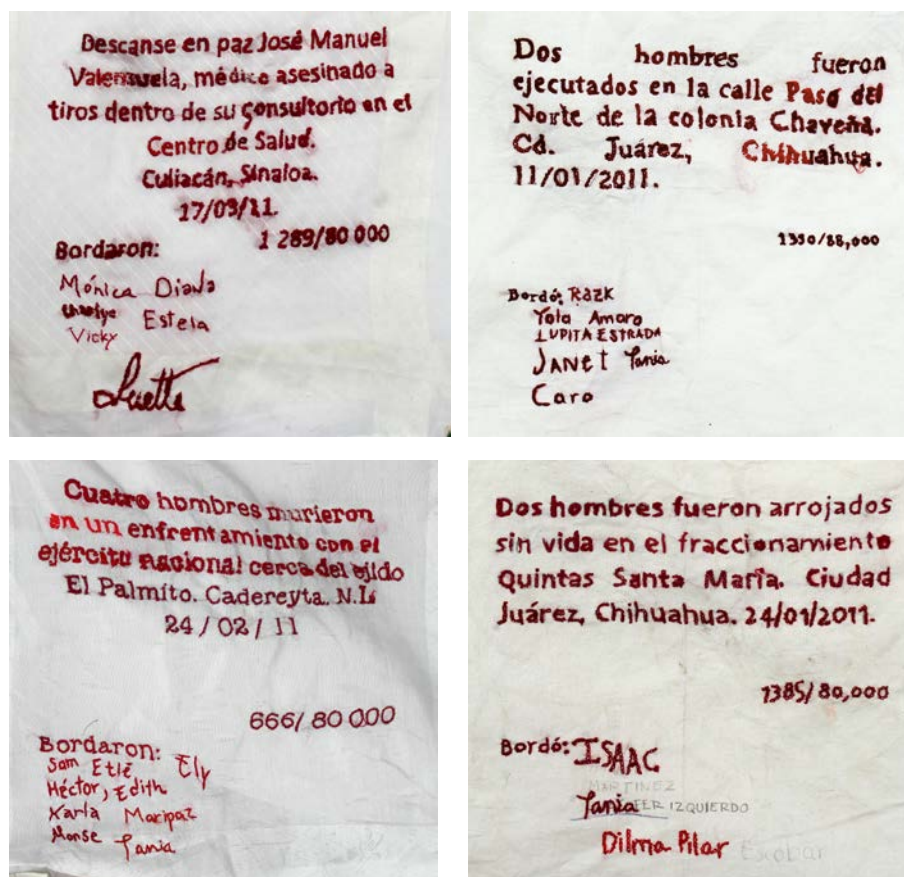 Descanse en paz José Manuel
Valenzuela, médico asesinado a
tiros dentro de su consultorio en el
Centro de Salud.
Culiacán, Sinaloa.
17/03/11.
1 289/80 000
Bordaron:
Mónica Diana
Estela
Vicky
Dos hombres fueron
ejecutados en la calle Paso del
Norte de la colonia Chaveña.
Cd. Juárez, Chihuahua.
11/01/2011.
1350/88,000
Bordó: Razk
Yola Amaro
LUPITA ESTRADA
JANET Tania
Caro
Cuatro hombres murieron
en un enfrentamiento con el
ejército nacional cerca del ejido
El Palmito. Cadereyta. N.L.
24/02/11
666/80 000
Bordaron:
Sam Etlé, Ely
Héctor, Edith
Karla Maripaz
Monse Tania
Dos hombres fueron arrojados
sin vida en el fraccionamiento
Quintas Santa María. Ciudad
Juárez, Chihuahua. 24/01/2011.
1385/80,000
Bordó: ISAAC
MARTINEZ
Tania FER IZQUIERDO
Dilma Pilar Escobar